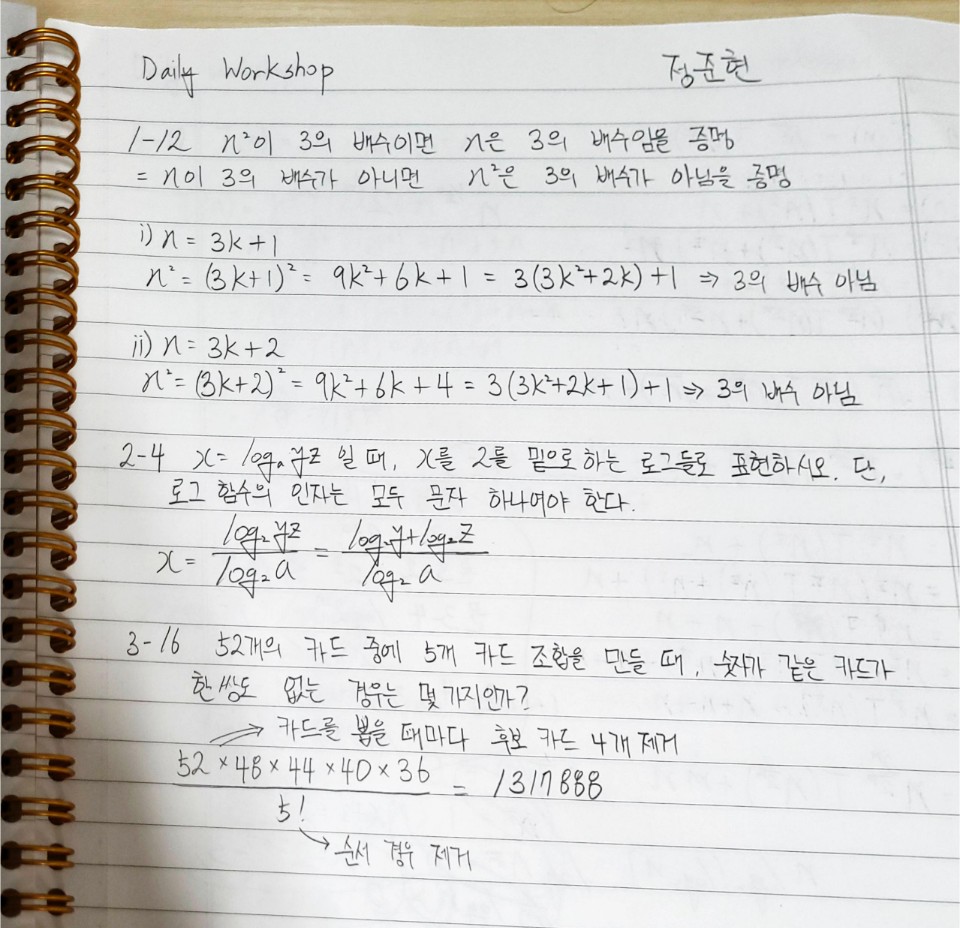 Daily Workshop 정준현
1-12 n²이 3의 배수이면 n은 3의 배수임을 증명
= n이 3의 배수가 아니면 n²은 3의 배수가 아님을 증명
i) n = 3k+1
n² = (3k+1)² = 9k²+6k+1 = 3(3k²+2k)+1 ⇒ 3의 배수 아님
ii) n = 3k+2
n² = (3k+2)² = 9k²+6k+4 = 3(3k²+2k+1)+1 ⇒ 3의 배수 아님
2-4 x = logₐ yz 일 때, x를 2를 밑으로 하는 로그들로 표현하시오. 단,
로그 함수의 인자는 모두 문자 하나여야 한다.
x = log₂yz / log₂a = log₂y+log₂z / log₂a
3-16 52개의 카드 중에 5개 카드 조합을 만들 때, 숫자가 같은 카드가
한 쌍도 없는 경우는 몇 가지인가?
→ 카드를 뽑을 때마다 후보 카드 4개 제거
52×48×44×40×36 / 5! = 1317888
→ 순서 경우 제거